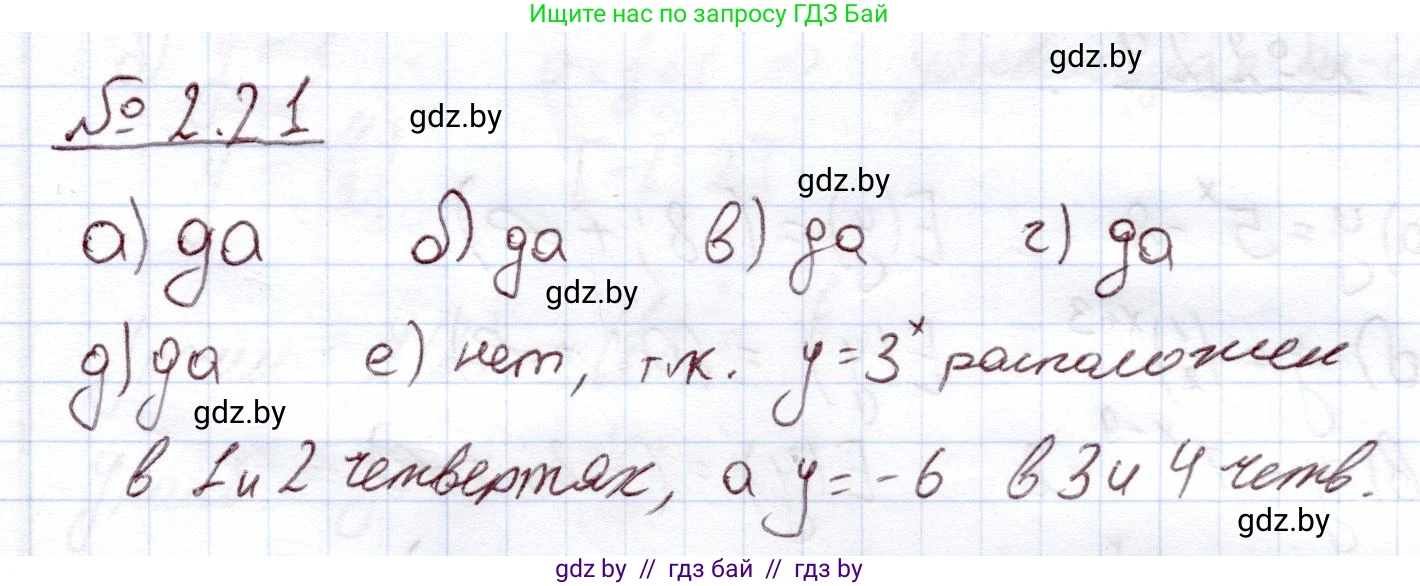 Ищите нас по запросу ГДЗ Бай
gdz.by
№ 2.21
gdz.by
gdz.by
а) да б) да в) да г) да
gdz.by
д) да е) нет, т.к. y = 3ˣ расположен
gdz.by
в 1 и 2 четвертях, а y = -6 в 3 и 4 четв.
gdz.by
gdz by // гдз бай // гдз by